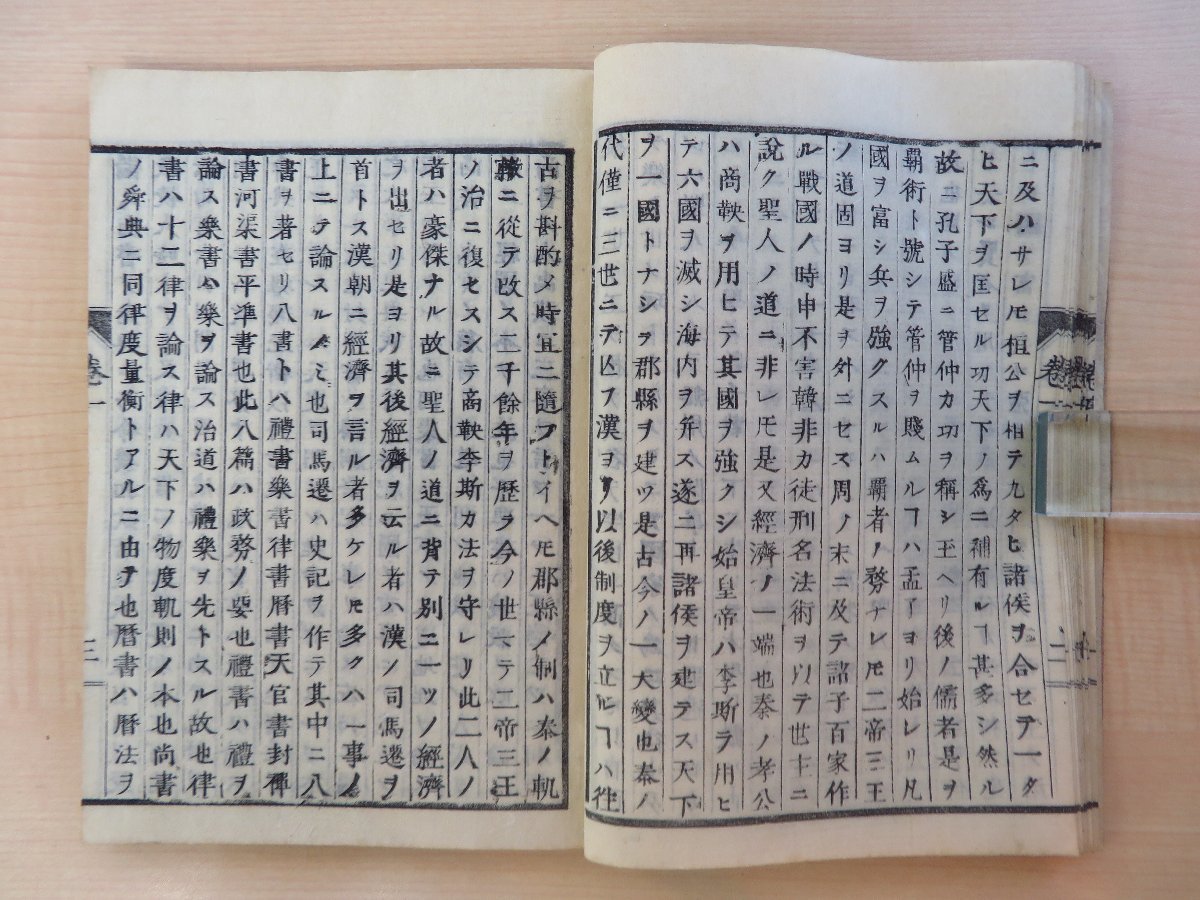 ニ及ハサレ𪜈桓公ヲ相テ九タヒ諸侯ヲ合セテ一タ
ヒ天下ヲ匡セル功天下ノ爲ニ補有ルヿ甚多シ然ル
故ニ孔子盛ニ管仲カ功ヲ稱シ玉ヘリ後ノ儒者是ヲ
覇術ト號シテ管仲ヲ賤ムルヿハ孟子ヨリ始レリ凡
國ヲ富シ兵ヲ強クスルハ覇者ノ務ナレ𪜈二帝三王
ノ道固ヨリ是ヲ外ニセス周ノ末ニ及テ諸子百家作
ル戰國ノ時申不害韓非カ徒刑名法術ヲ以テ世主ニ
說ク聖人ノ道ニ非レ𪜈是又經濟ノ一端也秦ノ孝公
ハ商鞅ヲ用ヒテ其國ヲ強クシ始皇帝ハ李斯ヲ用ヒ
テ六國ヲ滅シ海内ヲ并ス遂ニ再諸侯ヲ建テス天下
ヲ一國トナシテ郡縣ヲ建ツ是古今ノ一大變也秦ノ
代僅ニ三世ニテ亾フ漢ヨリ以後制度ヲ立ルヿハ往
古ヲ斟酌乄時宜ニ隨フトイヘ𪜈郡縣ノ制ハ秦ノ軌
轍ニ從テ改ス二千餘年ヲ歴テ今ノ世マテ二帝三王
ノ治ニ復セスシテ商鞅李斯カ法ヲ守レリ此二人ノ
者ハ豪傑ナル故ニ聖人ノ道ニ背テ別ニ一ツノ經濟
ヲ出セリ是ヨリ其後經濟ヲ云ル者ハ漢ノ司馬遷ヲ
首トス漢朝ニ經濟ヲ言ル者多ケレ𪜈多クハ一事ノ
上ニテ論スルノミ也司馬遷ハ史記ヲ作テ其中ニ八
書ヲ著セリ八書トハ禮書樂書律書曆書天官書封禪
書河渠書平準書也此八篇ハ政務ノ要也禮書ハ禮ヲ
論ス樂書ハ樂ヲ論ス治道ハ禮樂ヲ先トスル故也律
書ハ十二律ヲ論ス律ハ天下ノ物度軌則ノ本也尚書
ノ舜典ニ同律度量衡トアルニ由テ也曆書ハ曆法ヲ
卷一
三